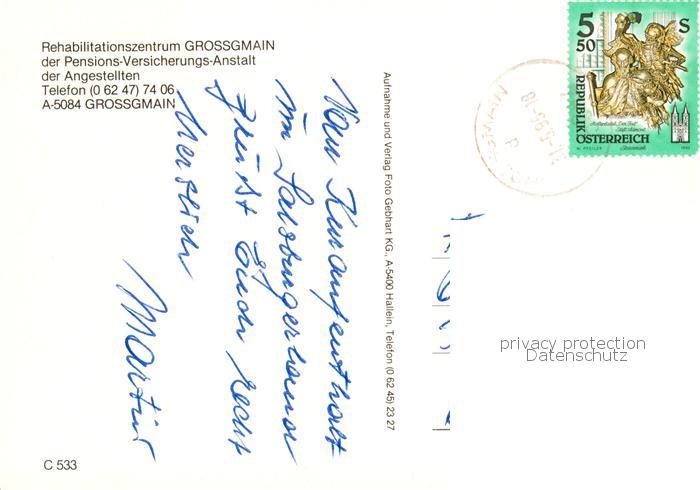 Rehabilitationszentrum GROSSGMAIN
der Pensions-Versicherungs-Anstalt
der Angestellten
Telefon (0 62 47) 74 06
A-5084 GROSSGMAIN
Vom Kuraufenthalt
im Salzburgerland
grüßt Euch recht
herzlich
Martin
C 533
Aufnahme und Verlag Foto Gebhart KG., A-5400 Hallein, Telefon (0 62 45) 23 27
5 50 S
REPUBLIK
ÖSTERREICH
privacy protection
Datenschutz